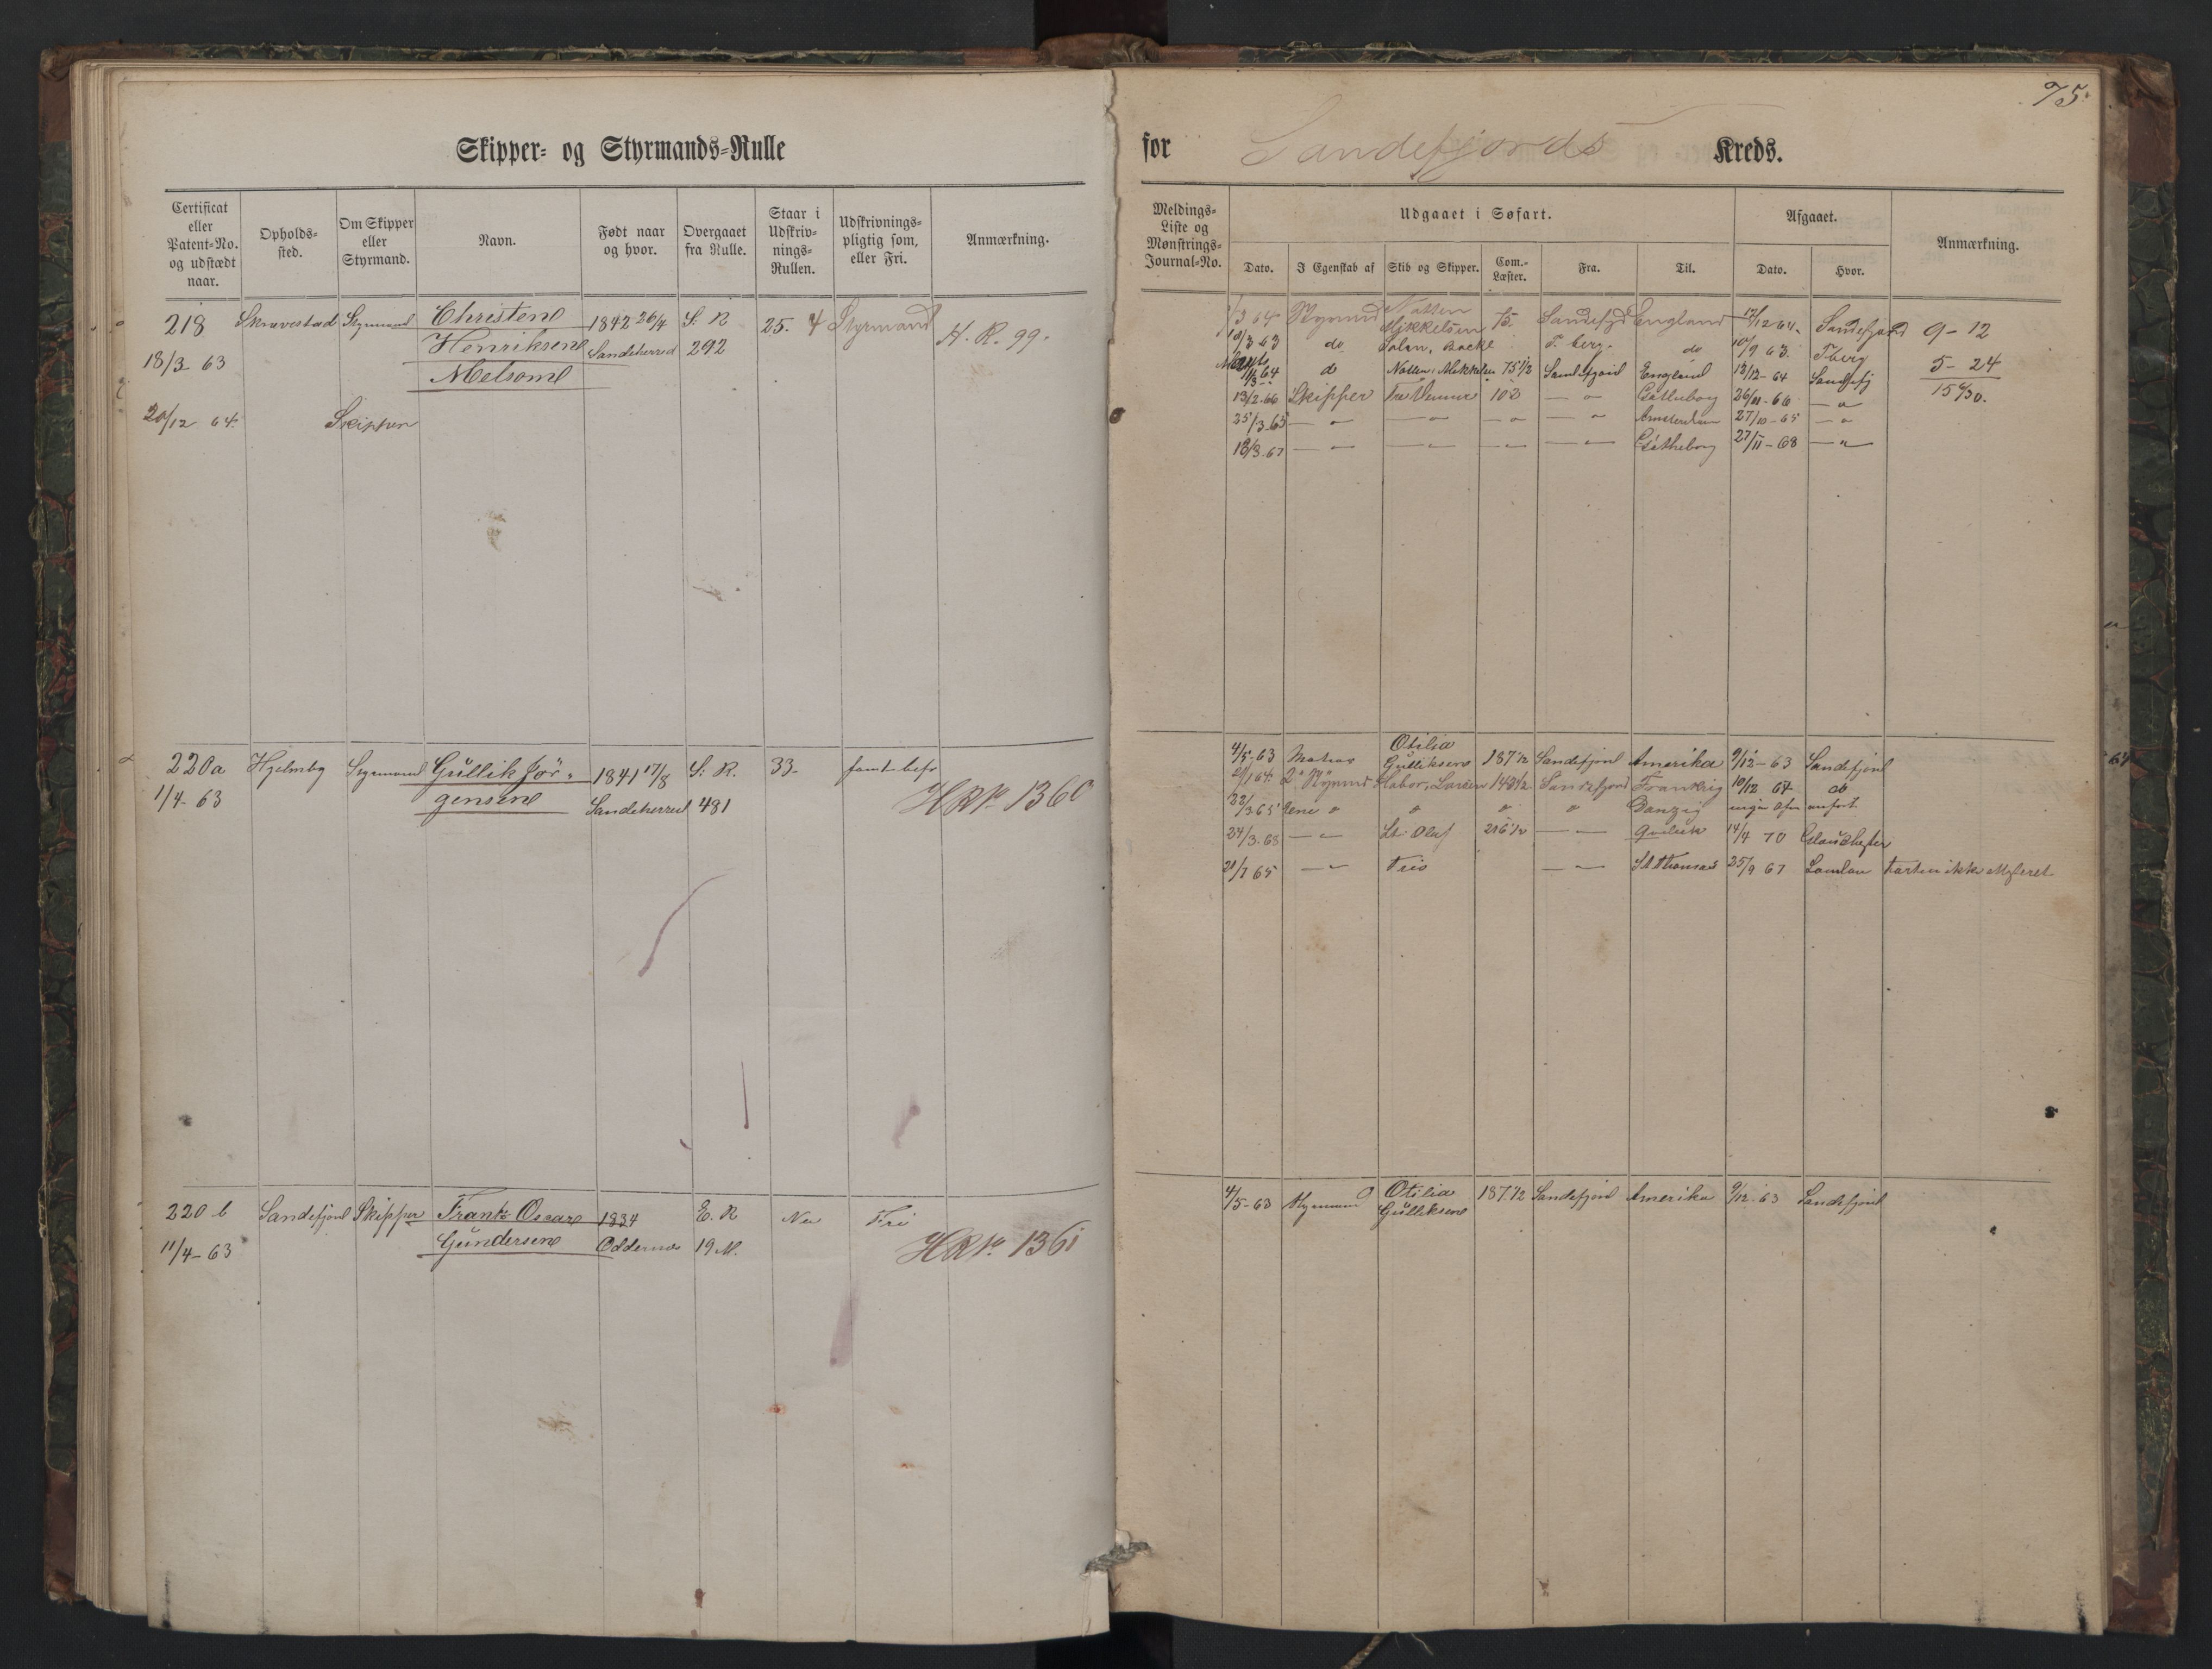 75.
Skipper- og Styrmands-Rulle
for Sandefjords Kreds.
Certificat eller Patent-No. og udstædt naar.
Opholds-sted.
Om Skipper eller Styrmand.
Navn.
Født naar og hvor.
Overgaaet fra Rulle.
Staar i Udskriv-nings-Rullen.
Udskrivnings-pligtig som, eller Fri.
Anmærkning.
Meldings-Liste og Mønstrings-Journal-No.
Udgaaet i Søfart.
Dato.
I Egenskab af
Skib og Skipper.
Com.-Læster.
Fra.
Til.
Afgaaet.
Dato.
Hvor.
Anmærkning.
218 Skravestad Styrmand Christen 1842 26/4 S: R 25. 4 Styrmand H. R. 99.
18/3 63 Henriksen Sandeherred 292
Melsom
20/12 64. Skipper
3 64 Natten England 12 64. Sandefjord 9-12
3 63 do Solen, Backe T. berg. do 10/9 63. T-berg 5-24
3 64 d Natten, Mikkelsen 75 1/2 Sandefjord England 12/12-64 Sandefj 15 4/30.
13/2.66 Skipper 102 — " Götheborg 26/11-66 — "
25/3.65 — " — " — " — " Amsterdam 27/10-65 — "
13/3.67 — " — " — " — " Götheborg 27/11-68 — "
220a Hjelmby Styrmand Gullik Jør- 1841 17/8 S: R. 33-
1/4-63 gensen Sandeherred 481 HRNo 1360
4/5-63 Matros Otilia Gulliksen 187 1/2 Sandefjord Amerika 9/12-63 Sandefjord
64. 2 Habor, Larsen 143 1/2 Sandefjord Frankrig 10/12 64 do
22/3 65 " " " Danzig
24/3.68 — " St. Olaf 216 1/2 — " 14/4 70
21/7 65 — " Trio — " St Thomas 25/9 67 London ikke
220 b Sandefjord Skipper Frantz Oscar 1834 E. R Nei Fri
11/4-63 Gundersen Oddernes 19 M. HRNo 1361
4/5-63 Styrmand Otilia Gulliksen 187 1/2 Sandefjord Amerika 9/12.63 Sandefjord
64